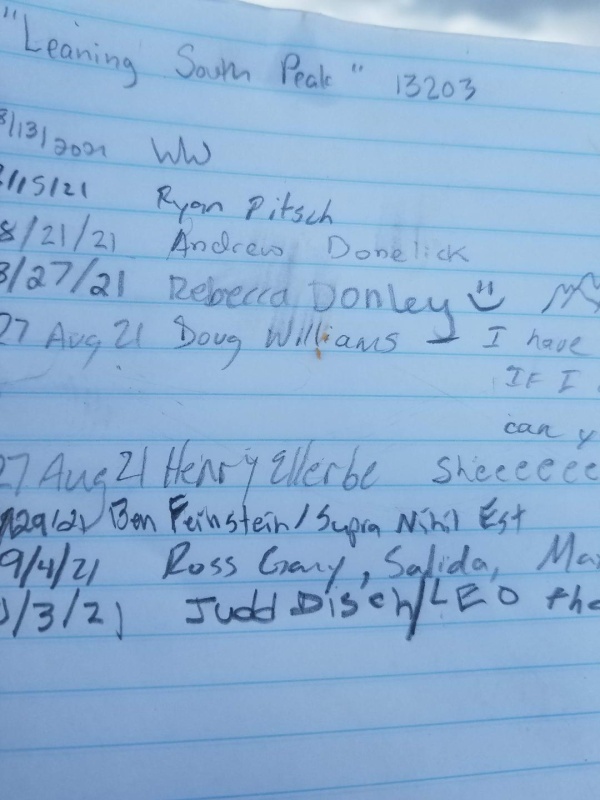 "Leaning South Peak" 13203
8/13/2021 WW
/15/21 Ryan Pitsch
8/21/21 Andrew Donelick
8/27/21 Rebecca Donley
27 Aug 21 Doug Williams – I have
IF I
can y
27 Aug 21 Henry Ellerbe Sheeeeee
/29/21 Ben Feinstein/Supra Nihil Est
9/4/21 Ross Gary, Salida, Ma
/3/21 Judd Disch/LEO tha